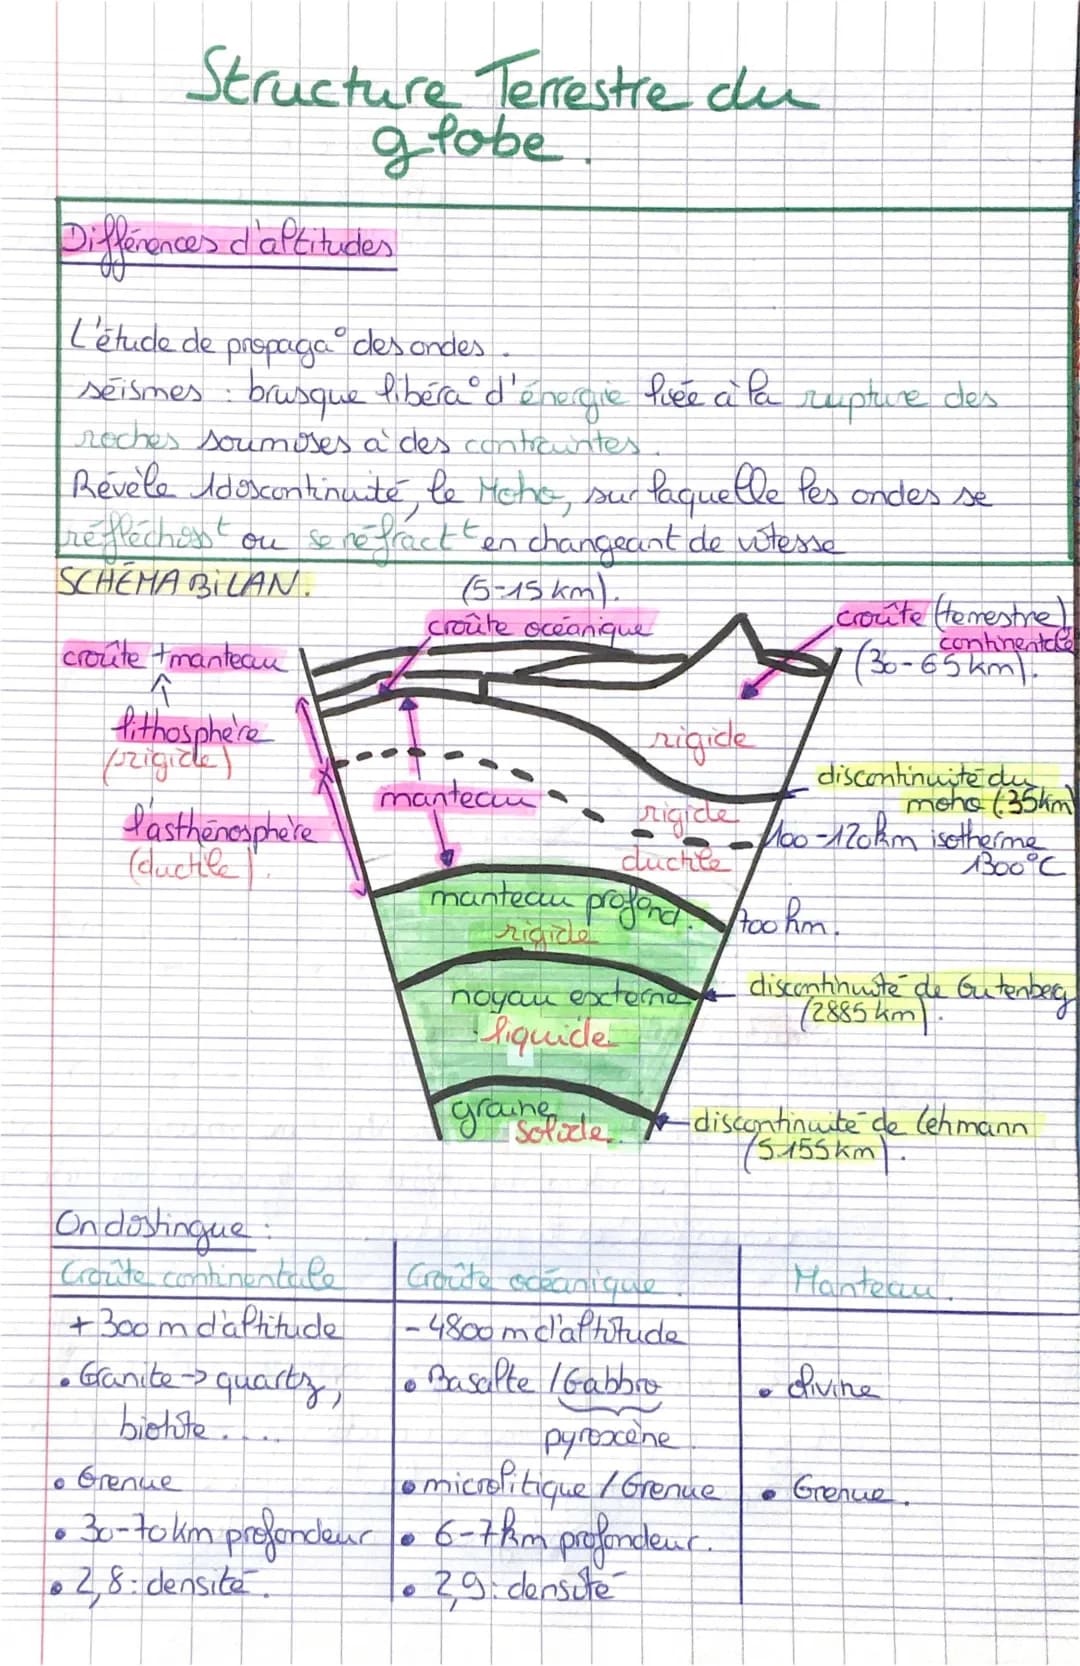 Structure Terrestre du
globe.
Différences d'altitudes
L'étude de propaga° des ondes.
séismes : brusque libéra° d'énergie liée à la rupture des
roches soumises à des contraintes.
Révèle 1 discontinuité, le Moho, sur laquelle les ondes se
réfléchisst ou se réfractt en changeant de vitesse
SCHÉMA BILAN.
(5-15 km).
croûte océanique
croûte (terrestre)
continentale
(30-65 km).
croûte + manteau
lithosphère
(rigide)
rigide
discontinuité du
moho (35km)
manteau
l'asthénosphère
(ductile).
rigide
100-120km isotherme
1300°C
ductile
manteau profond.
rigide
700 km.
discontinuité de Gutenberg
(2885 km).
noyau externe
liquide
graine
solide.
discontinuité de Lehmann
(5155 km).
On distingue :
Croûte continentale | Croûte océanique. | Manteau.
+ 300 m d'altitude | - 4800 m d'altitude
• Granite → quartz, | • Basalte / Gabbro | • olivine
biotite .... | pyroxène
• Grenue | • microlitique / Grenue | • Grenue.
• 30-70 km profondeur | • 6-7 km profondeur.
• 2,8 : densité. | • 2,9 : densité